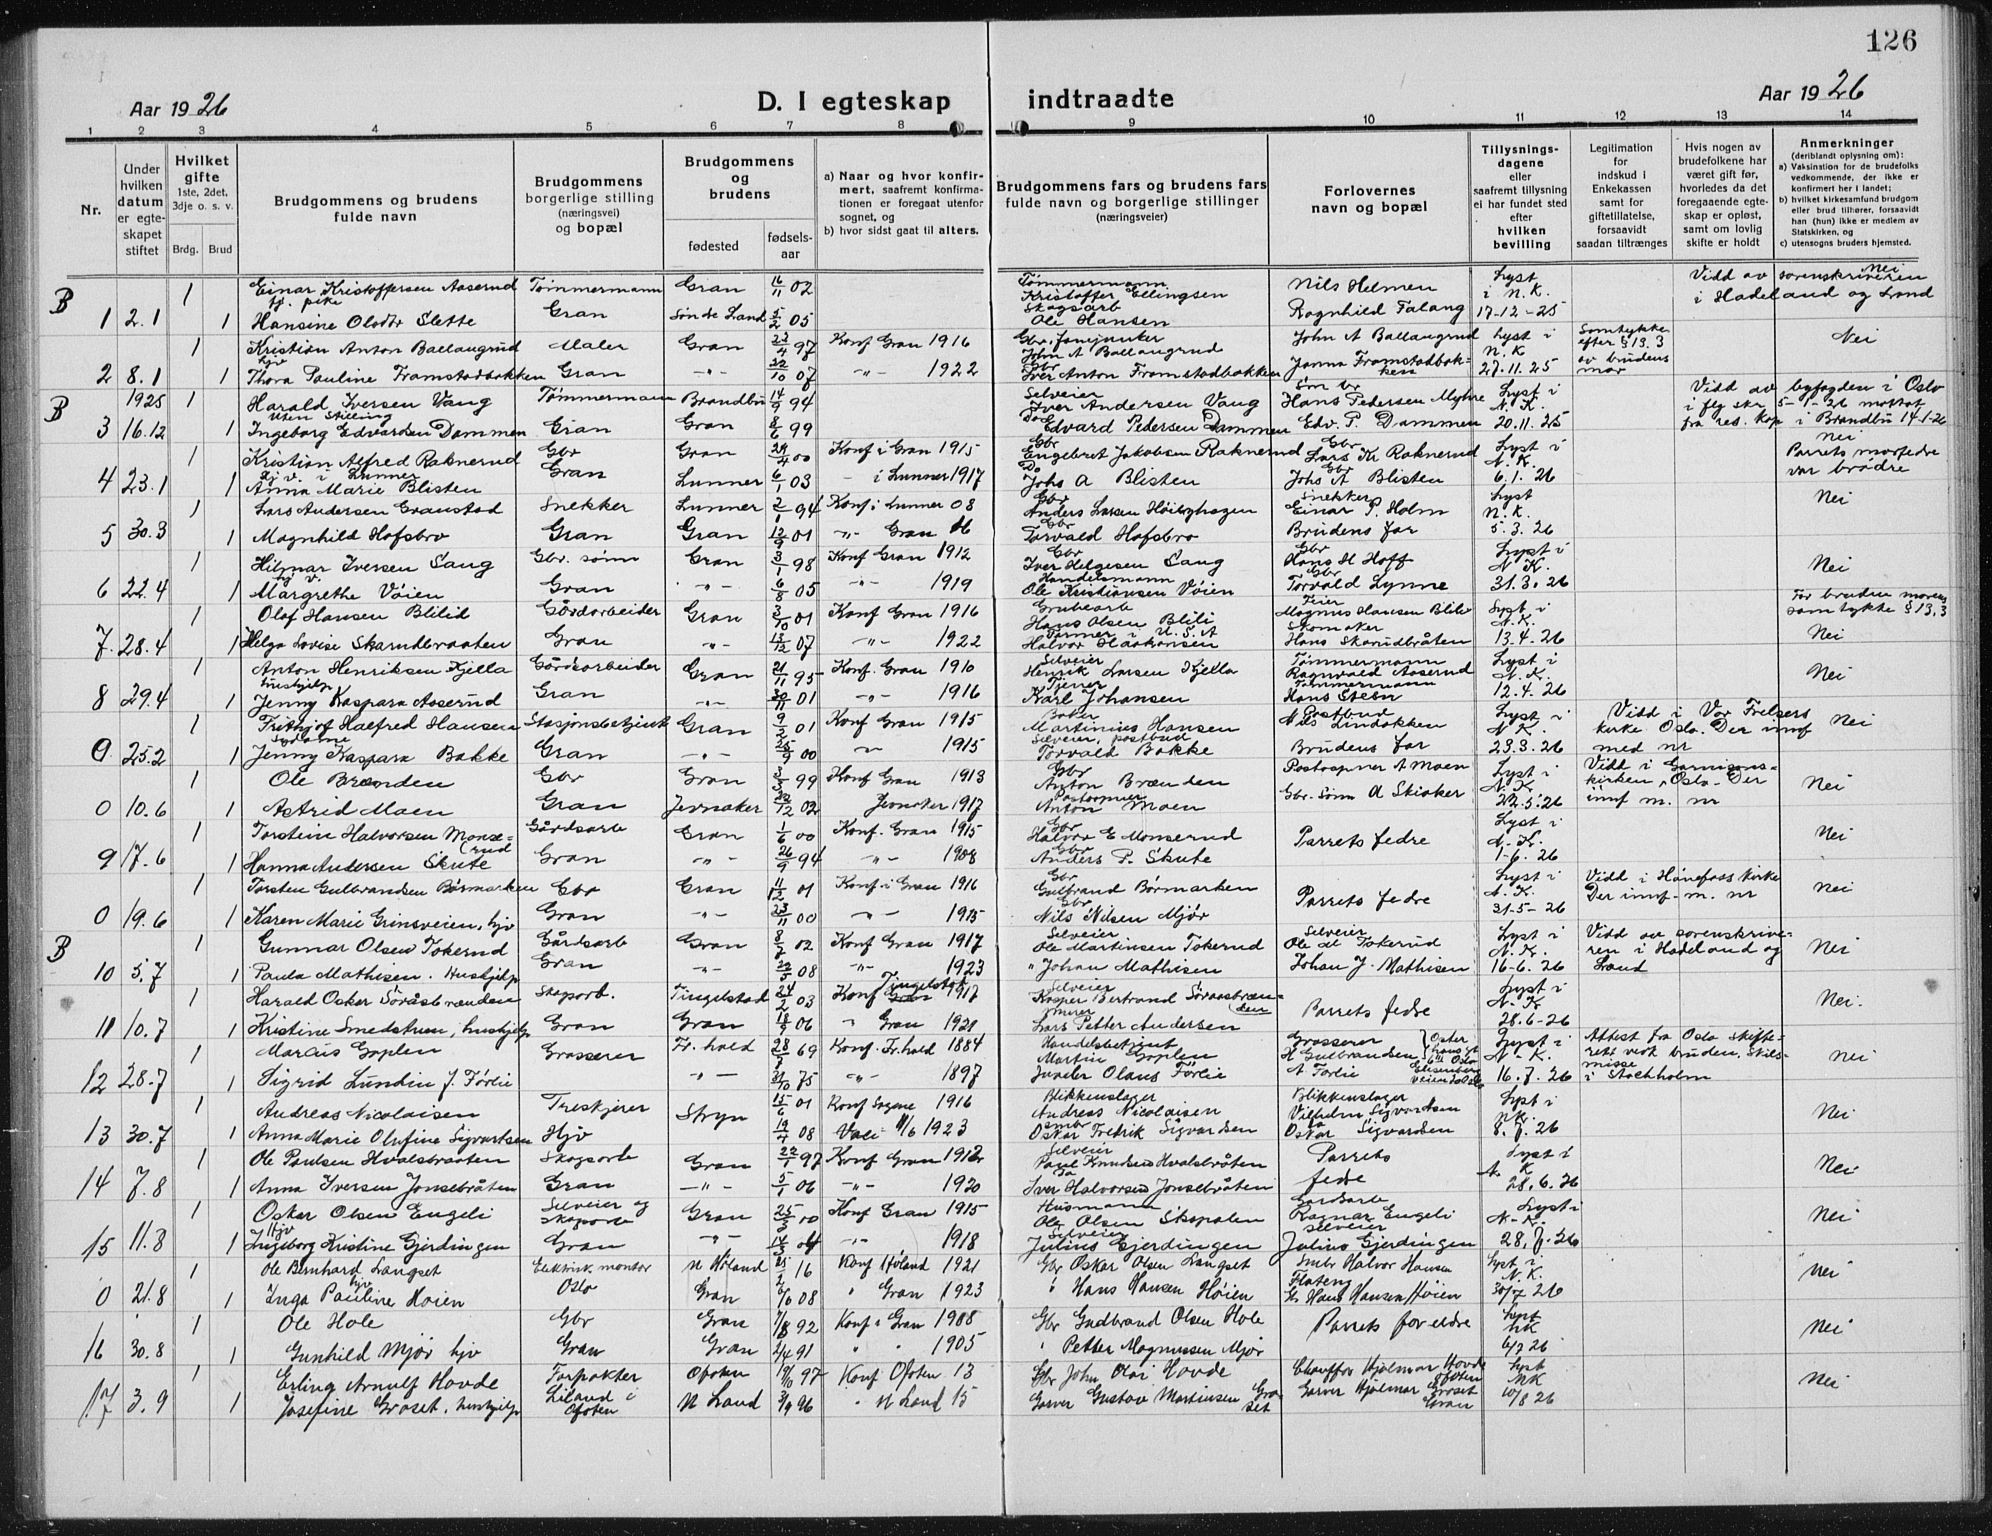 126
Aar 1926
D. I egteskap indtraadte
Aar 1926
1 2 3 4 5 6 7 8 9 10 11 12 13 14
Nr.
Under hvilken datum er egteskapet stiftet
Hvilket gifte 1ste, 2det, 3dje o. s. v.
Brdg. Brud
Brudgommens og brudens fulde navn
Brudgommens borgerlige stilling (næringsvei) og bopæl
Brudgommens og brudens
fødested
fødsels-aar
a) Naar og hvor konfirmert, saafremt konfirmationen er foregaat utenfor sognet, og
b) hvor sidst gaat til alters.
Brudgommens fars og brudens fars fulde navn og borgerlige stillinger (næringsveier)
Forlovernes navn og bopæl
Tillysningsdagene eller saafremt tillysning ei har fundet sted efter hvilken bevilling
Legitimation for indskud i Enkekassen samt for giftetillatelse, forsaavidt saadan tiltrænges
Hvis nogen av brudefolkene har været gift før, hvorledes da det foregaaende egteskap er opløst, samt om lovlig skifte er holdt
Anmerkninger (deriblandt oplysning om):
a) Vaksination for de brudefolks vedkommende, der ikke er konfirmert her i landet;
b) hvilket kirkesamfund brudgom eller brud tilhører, forsaavidt han (hun) ikke er medlem av Statskirken, og
c) utensogns bruders hjemsted.
B 1 Einar Kristoffersen Aaserud Tømmermann Gran 16/11 02 Tømmermann Kristoffer Ellingsen Nils Helmen Lyst i N.K. Vidd av sorenskriveren Nei
1 2.1 1 fj. pike Hansine Olsdtr Slette Gran Søndre Land 5/2 05 Skogsarb Ole Hansen Ragnhild Falang 17-12-25 i Hadeland og Land
1 Kristian Anton Ballangrud Maler Gran 23/4 97 Konf Gran 1916 Gbr. John A Ballangrud John A Ballangrud Lyst i N.K Samtykke efter § 13.3 Nei
2 8.1 1 hjv Thora Pauline Framstadbakken Gran -"- 22/10 07 -"- 1922 Gbr Iver Anton Framstadbakken Janna Framstadbakken 27.11.25 av brudens mor
B 1925 1 Harald Iversen Vang Tømmermann Brandbu 14/9 94 Selveier Iver Andersen Vang Hans Pedersen Myhre Lyst i N.K. Vidd av byfogden i Oslo
3 16.12 1 Uten stilling Ingeborg Edvardsen Dammen Gran Gran 8/6 99 Do Edvard Pedersen Dammen Edv. P. Dammen 20.11.25 i flg skr 5-1-26 mottat fra res. kap i Brandbu 14-1-26 Nei
1 Kristian Alfred Raknerud Gbr Gran 29/4 00 Konf i Gran 1915 Gbr Engebret Jakobsen Raknerud Gbr Lars Kr Raknerud Lyst i N.K. Parrets morfedre
4 23.1 1 hj v. i Lunner Anna Marie Blisten Gran Lunner 6/1 03 - i Lunner 1917 Do Johs A Blisten Gbr Johs A Blisten 6.1.26 var brødre
1 Lars Andersen Granstad Snekker Lunner 2/1 94 Konf i Lunner 08 Gbr Anders Larsen Høibyhagen Snekker Einar P. Holm Lyst N.K. Nei
5 30.3 1 Magnhild Hofsbro Gran Gran 12/9 01 -"- Gran 16 Gbr Torvald Hofsbro Brudens far 5.3.26
1 Hilmar Iversen Sang Gbr. sønn Gran 3/1 98 Konf Gran 1912 Gbr Iver Helgesen Sang Gbr Hans H Hoff Lyst i N.K. Nei
6 22.4 1 hj v. Margrethe Vøien Gran -"- 6/8 05 -"- 1919 Handelsmann Ole Kristiansen Vøien Gbr Torvald Lynne 31.3.26
1 Olaf Hansen Blilid Gårdarbeider Gran 3/10 01 Konf Gran 1916 Grubearb Hans Olsen Blili Feier Magnus Hansen Blili Lyst i N.K. For bruden morens samtykke § 13,3
7. 28.4 1 Helga Lovise Skarudbraaten Gran -"- 13/12 07 -"- 1922 Farmer i U.S.A Halvor Haakonsen Skomaker Hans Skarudbråten 13.4.26 Nei
1 Anton Henriksen Kjella Gårdsarbeider Gran 21/11 95 Konf. Gran 1910 Selveier Henrik Larsen Kjella Tømmermann Ragnvald Aaserud Lyst i N.K. Nei
8 29.4 1 hushjelp Jenny Kaspara Aaserud Gran -"- 30/11 01 -"- 1916 Karl Johansen Tømmermann Hans Stebn 12.4.26
1 Frithjof Halfred Hansen Stasjonsbetjent Gran 9/3 01 Konf Gran 1915 Baker Martinius Hansen Postbud Nils Lindokken Lyst i N.K. Vidd i Vor Frelsers Nei
0 25.2 1 Jenny Kaspara Bakke Gran -"- 25/9 00 -"- 1915 Selveier, postbud Torvald Bakke Brudens far 23.3.26 kirke Oslo. Der innf med nr
1 Ole Brænden Gbr Gran 3/5 99 Konf Gran 1913 Gbr Anton Brænden Postaapner A Moen Lyst i N.K. Vidd i Garnisons-
0 10.6 1 Astrid Moen Gran Jevnaker 22/12 02 Jevnaker 1917 Postaapner Anton Moen Gbr. Sønn A Skiaker 22.5.26 kirken, Oslo. Der innf m. nr Nei
1 Torstein Halvorsen Monserud Gårdsarb Gran 1/6 00 Konf. Gran 1915 Gbr Halvor E Monserud Parrets fedre Lyst i N.K. Nei
9 17.6 1 Hanna Andersen Skute Gran -"- 26/9 94 -"- 1908 Gbr Anders P. Skute 1-6.26
1 Torsten Gulbrandsen Børmarken Gbr Gran 11/12 01 Konf i Gran 1916 Gbr Gulbrand Børmarken Parrets fedre Lyst i N.K. Vidd i Hønefoss kirke Nei
0 19.6 1 Karen Marie Grinsveien, hjv Gran -"- 23/11 00 -"- 1915 Gbr Nils Nilsen Mjør 31-5-26 Der innf. m. nr
B 1 Gunnar Olsen Tokerud Gårdsarb Gran 8/7 02 Konf Gran 1917 Selveier Ole Martinsen Tokerud Selveier Ole M Tokerud Lyst i N.K. Vidd av sorenskrive- Nei
10 5.7 1 Paula Mathisen. Hushjelp Gran -"- 22/5 08 -"- 1923 " Johan Mathisen Johan J. Mathisen 16-6.26 ren i Hadeland og Land
1 Harald Oskar Søråsbrænden Skogarb. Tingelstad 24/2 03 Konf Tingelstad 1917 Selveier Kasper Bertrand Søraasbrænden Parrets fedre Lyst i N.K Nei.
11 10.7 1 Kristine Smedstuen, hushjelp Gran Gran 18/9 06 " Gran 1921 Murer Lars Petter Andersen 28.6-26
1 Marcus Goplen Grosserer Fr.hald 28/7 69 Konf. Fr.hald 1884 Handelsbetjent Martin Goplen Grosserer H Gulbrandsen Oslo Lyst i N.K. Attest fra Oslo skifte- Nei
12 28.7 1 Sigrid Lundin f. Førlie -"- 31/10 75 -"- 1897 Juveler Olaus Førlie A Førlie 16.7.26 rett vedr bruden. Skilsmisse i Stockholm
1 Andreas Nicolaisen Treskjærer Stryn 15/6 01 Konf Sagene 1916 Blikkenslager Andreas Nicolaisen Blikkenslager Vilhelm Sigvartsen Lyst i N.K. Nei
13 30.7 1 Anna Marie Olufine Sigvartsen Hjv 19/4 08 1923 Smbr Oskar Fredrik Sigvardsen Oskar Sigvardsen 8.7.26
1 Ole Paulsen Hvalsbraaten Skogsarb Gran 22/1 97 Konf Gran 1912 Selveier Paul Knudsen Hvalsbråten Parrets Lyst i N.K Nei
14 7.8 1 Anna Iversen Jonsebråten Gran -"- 5/1 06 -"- 1920 Iver Halvorsen Jonsebråten fedre 28.6.26
1 Oskar Olsen Engeli Selveier og skogarb Gran 25/3 00 Konf Gran 1915 Husmann Ole Olsen Skapalen Gardsarb Ragnar Engeli Lyst i N.K. Nei
15 11.8 1 Hjv Ingeborg Kristine Gjerdingen Gran -"- 14/3 04 -"- 1918 Selveier Julius Gjerdingen Selveier Julius Gjerdingen 28.7.26
1 Ole Bernhard Langset Elektrisk. montør N Høland Konf Høland 1921 Gbr Oskar Olsen Langset Smbr Halvor Hansen Flateng Lyst i N.K. Nei
0 21.8 1 hjv Inga Pauline Høien Oslo Gran 08 " Gran 1923 " Hans Hansen Høien Hans Hansen Høien 30/7 26
1 Ole Hole Gbr Gran 92 Konf i Gran 1908 Gbr Gudbrand Olsen Hole Parrets foreldre Lyst NK Nei
16 30.8 1 Gunhild Mjør hjv Gran Gran 91 " " 1905 " Petter Magnussen Mjør 6/7 26
1 Erling Arnulf Hovde Forpakter Ofoten 97 Konf Ofoten 13 Gbr John Olai Hovde Chauffør Hjalmar Hovde Ofoten Lyst NK Nei
17 3.9 1 Josefine Groset, hushjelp Liland i Ofoten N Land 96 " N Land 15 Garver Gustav Martinsen Groset Garver Hjalmar Groset Gran 10/8 26